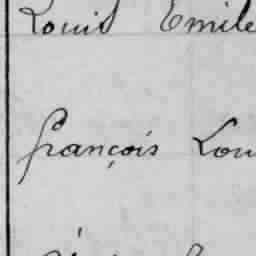 Louis Emile
françois Lou